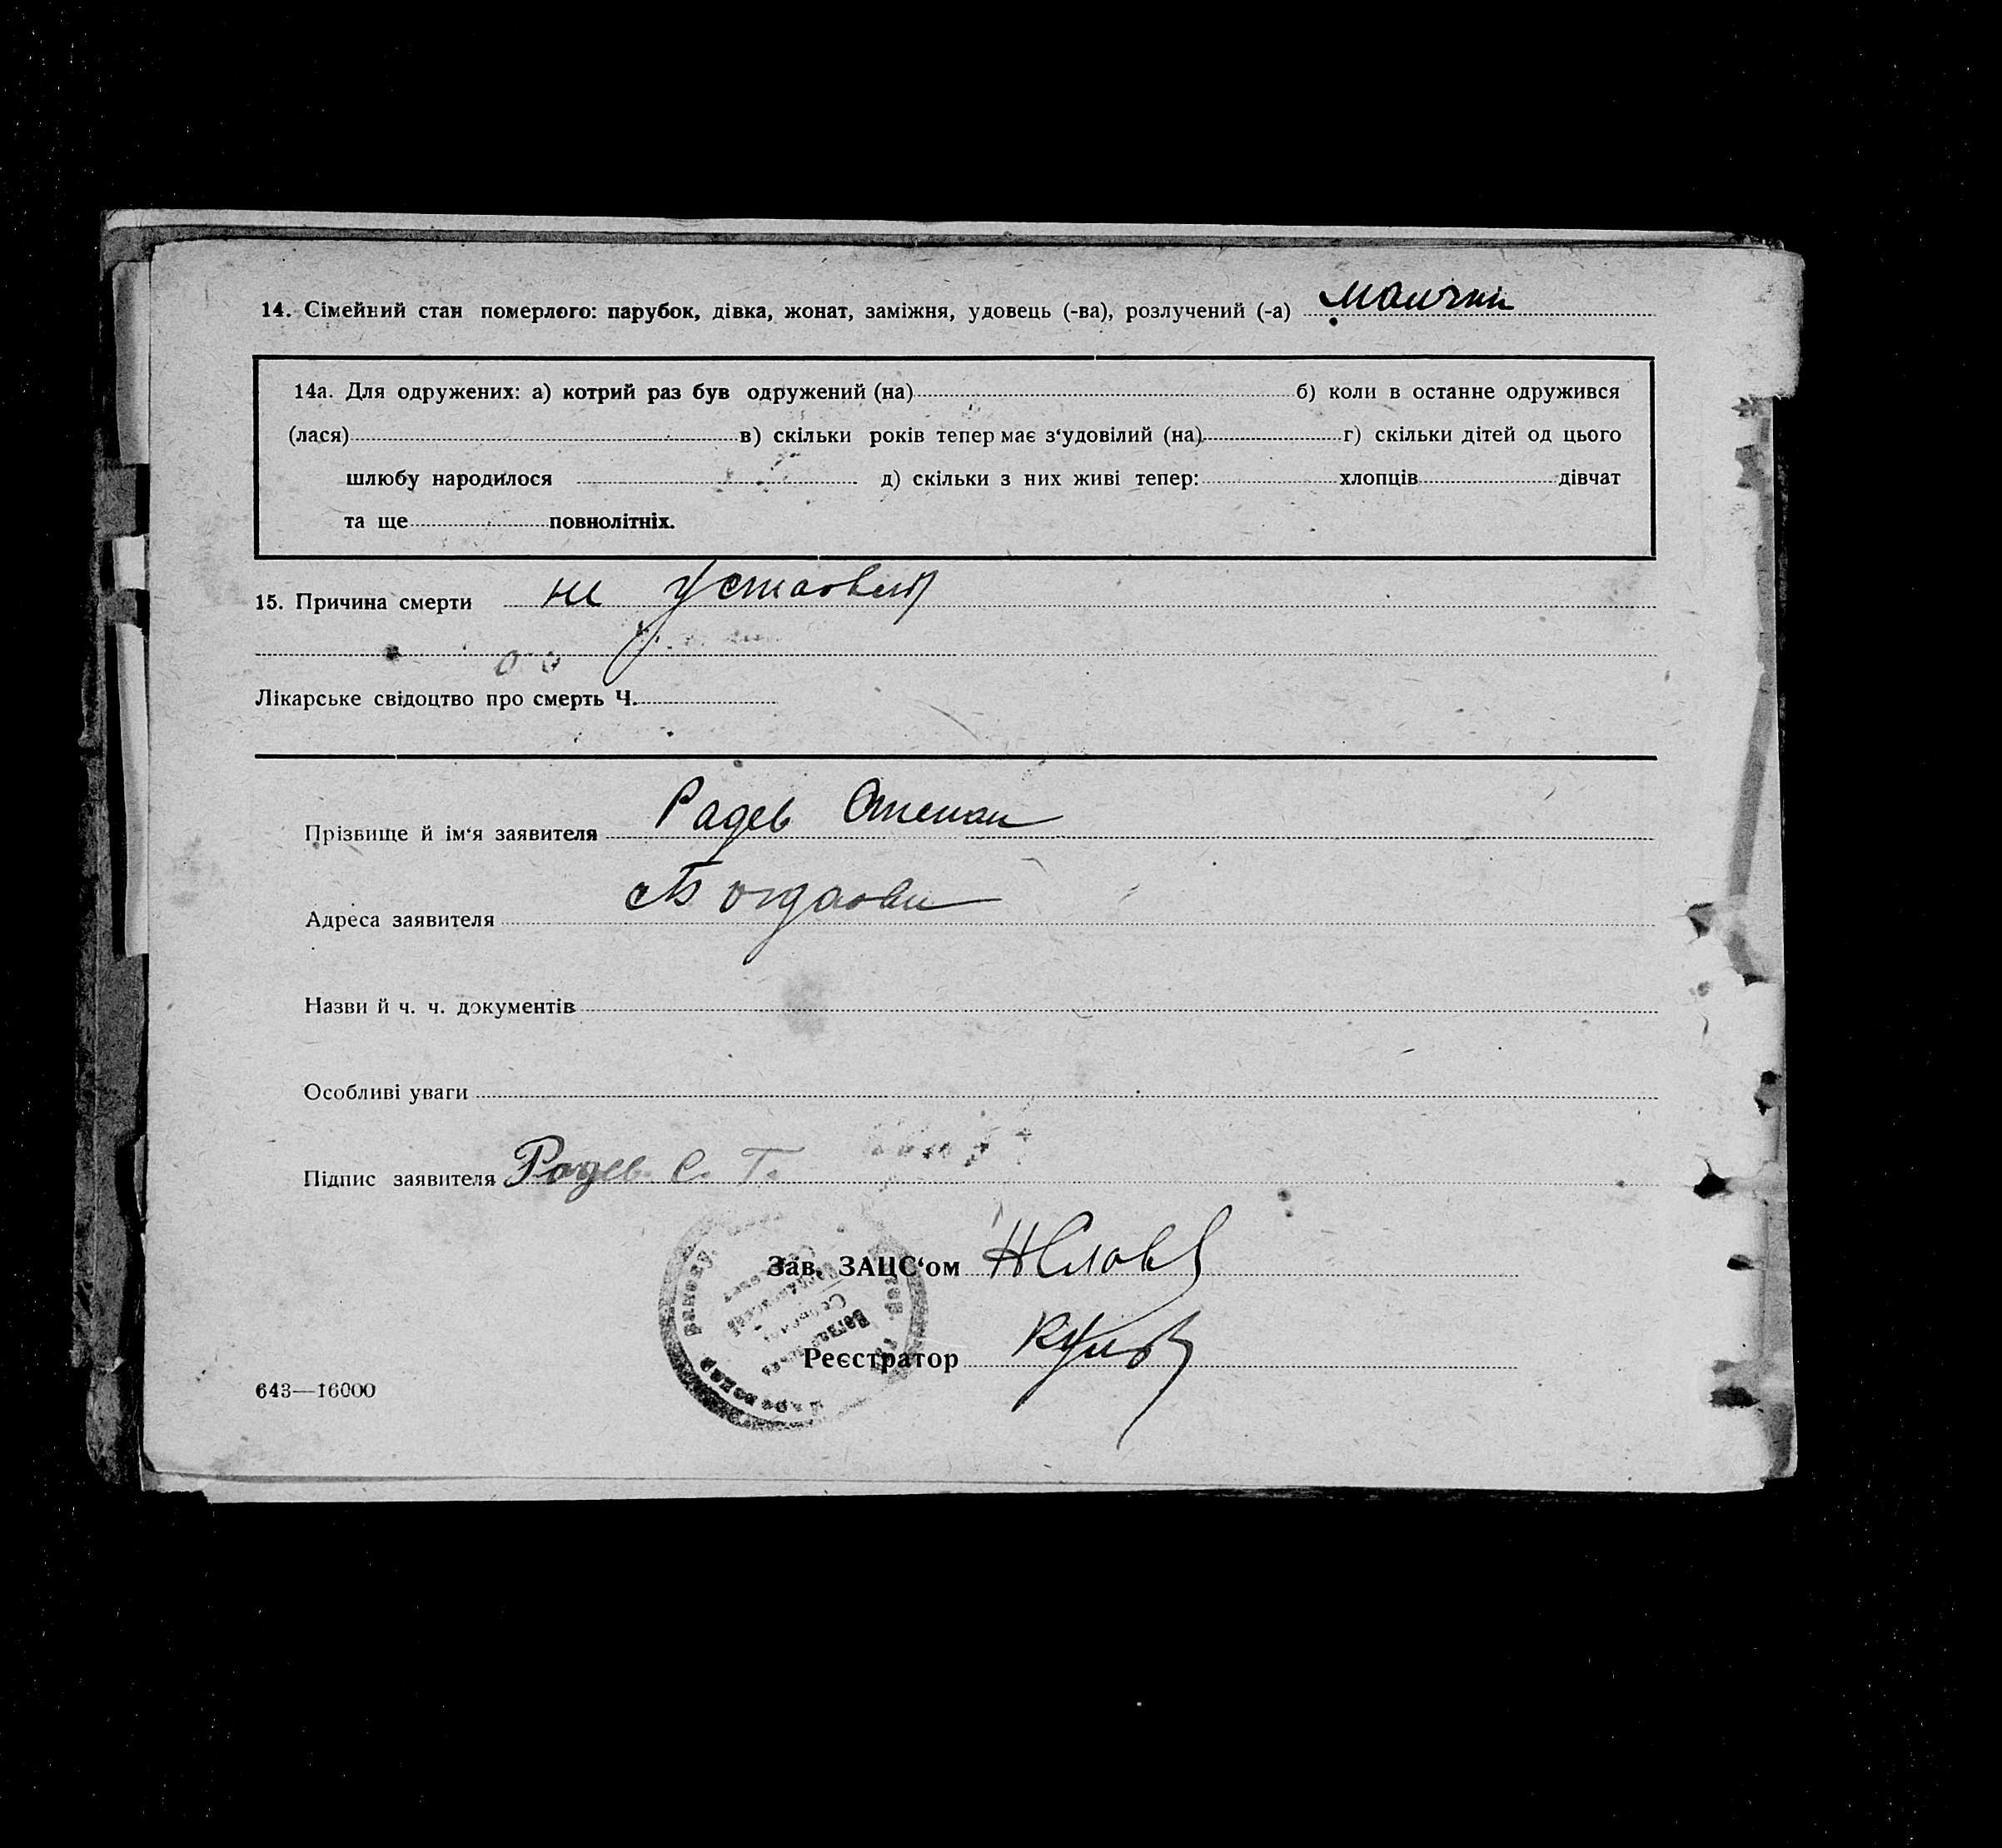 14. Сімейний стан померлого: парубок, дівка, жонат, заміжня, удовець (-ва), розлучений (-а)
14а. Для одружених: а) котрий раз був одружений (на) б) коли в останне одружився
(лася) в) скільки років тепер має з‘удовілий (на) г) скільки дітей од цього
шлюбу народилося д) скільки з них живі тепер: хлопців дівчат
та ще повнолітніх.
15. Причина смерти не
Лікарське свідоцтво про смерть Ч.
Прізвище й ім‘я заявителя Радев Степан
Адреса заявителя
Назви й ч. ч. документів
Особливі уваги
Підпис заявителя Радев С. Г.
Зав. ЗАЦС‘ом
Реєстратор
643—16000